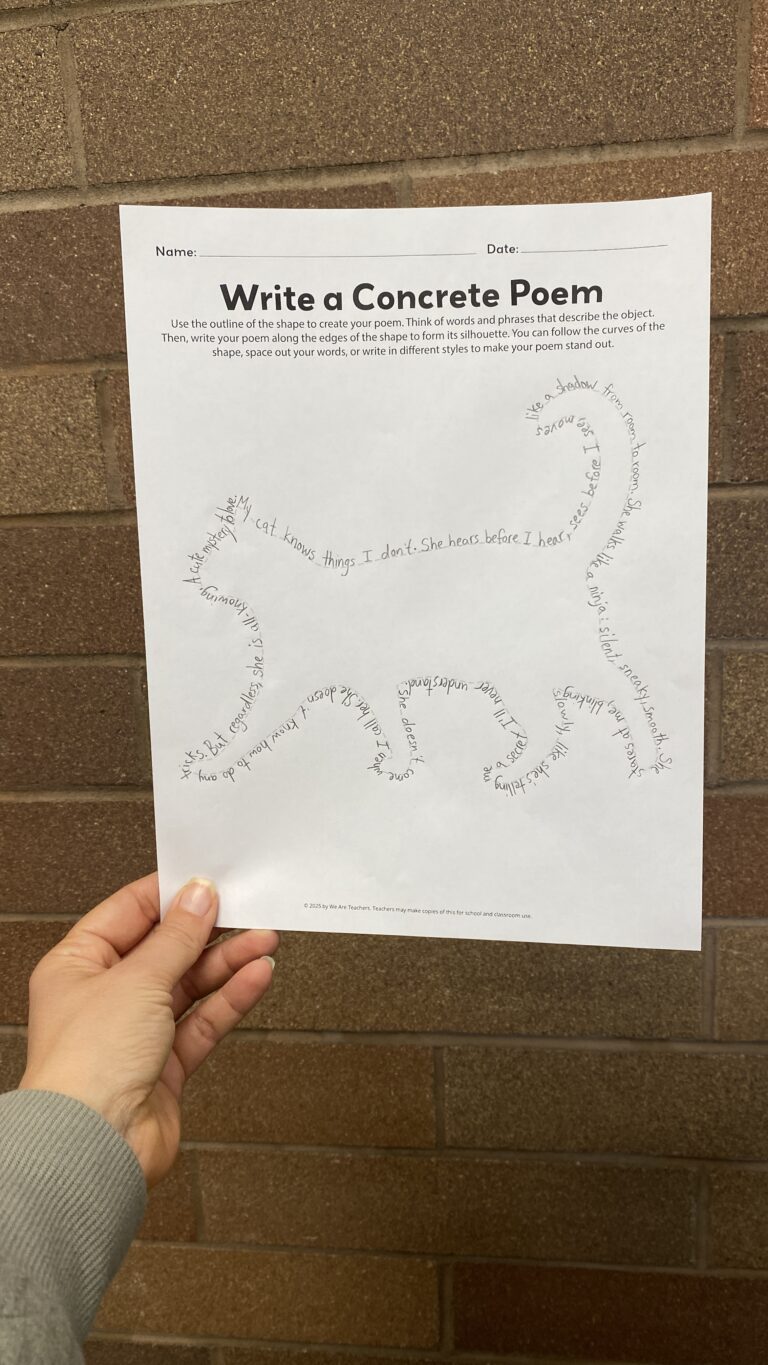 Name:
Date:
Write a Concrete Poem
Use the outline of the shape to create your poem. Think of words and phrases that describe the object.
Then, write your poem along the edges of the shape to form its silhouette. You can follow the curves of the
shape, space out your words, or write in different styles to make your poem stand out.
My cat knows things I don't. She hears before I hear, sees before I see, moves like a shadow from room to room. She walks like a ninja: silent, sneaky, smooth. She stares at me, blinking slowly, like she's telling me a secret I'll never understand. She doesn't come when I call her. She doesn't know how to do any tricks. But regardless, she is all-knowing. A cute mystery to love.
© 2025 by We Are Teachers. Teachers may make copies of this for school and classroom use.